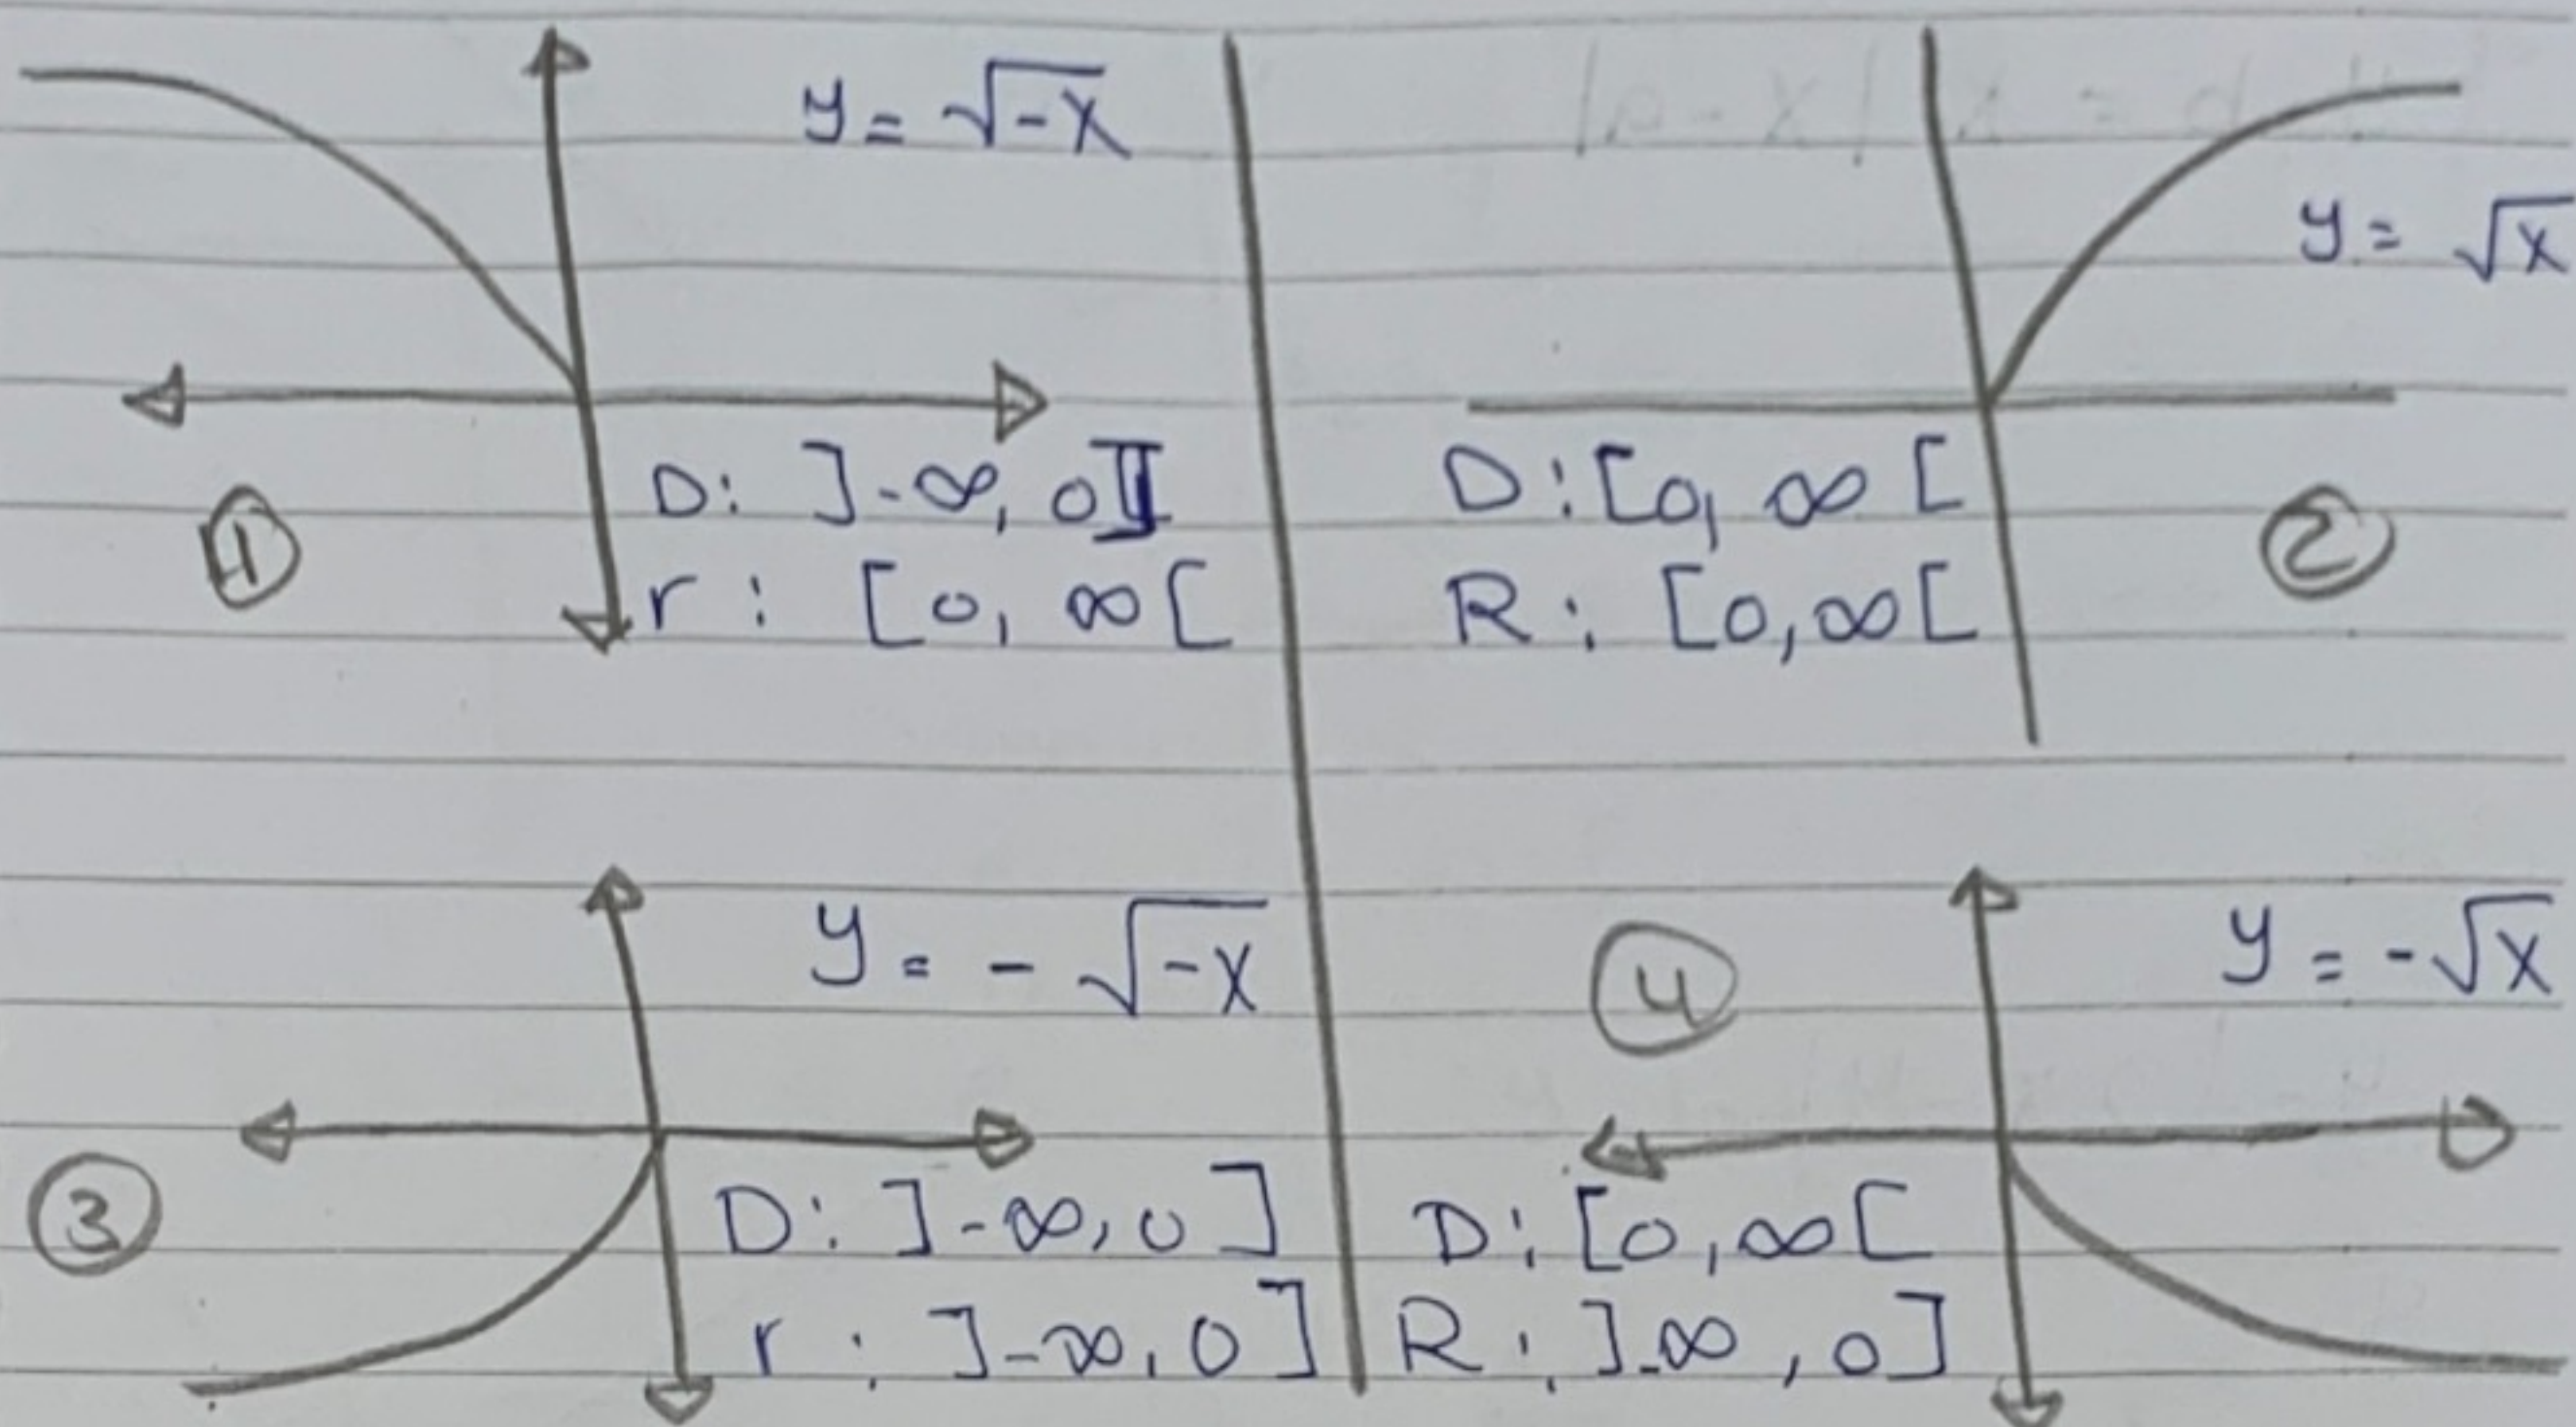 y = √-x
D: ]-∞, 0]
r : [0, ∞[
①
y = √x
D: [0, ∞ [
R: [0,∞[
②
y = - √-x
③
D: ]-∞, 0]
r : ]-∞, 0]
④
y = -√x
D: [0,∞[
R: ]-∞, 0]